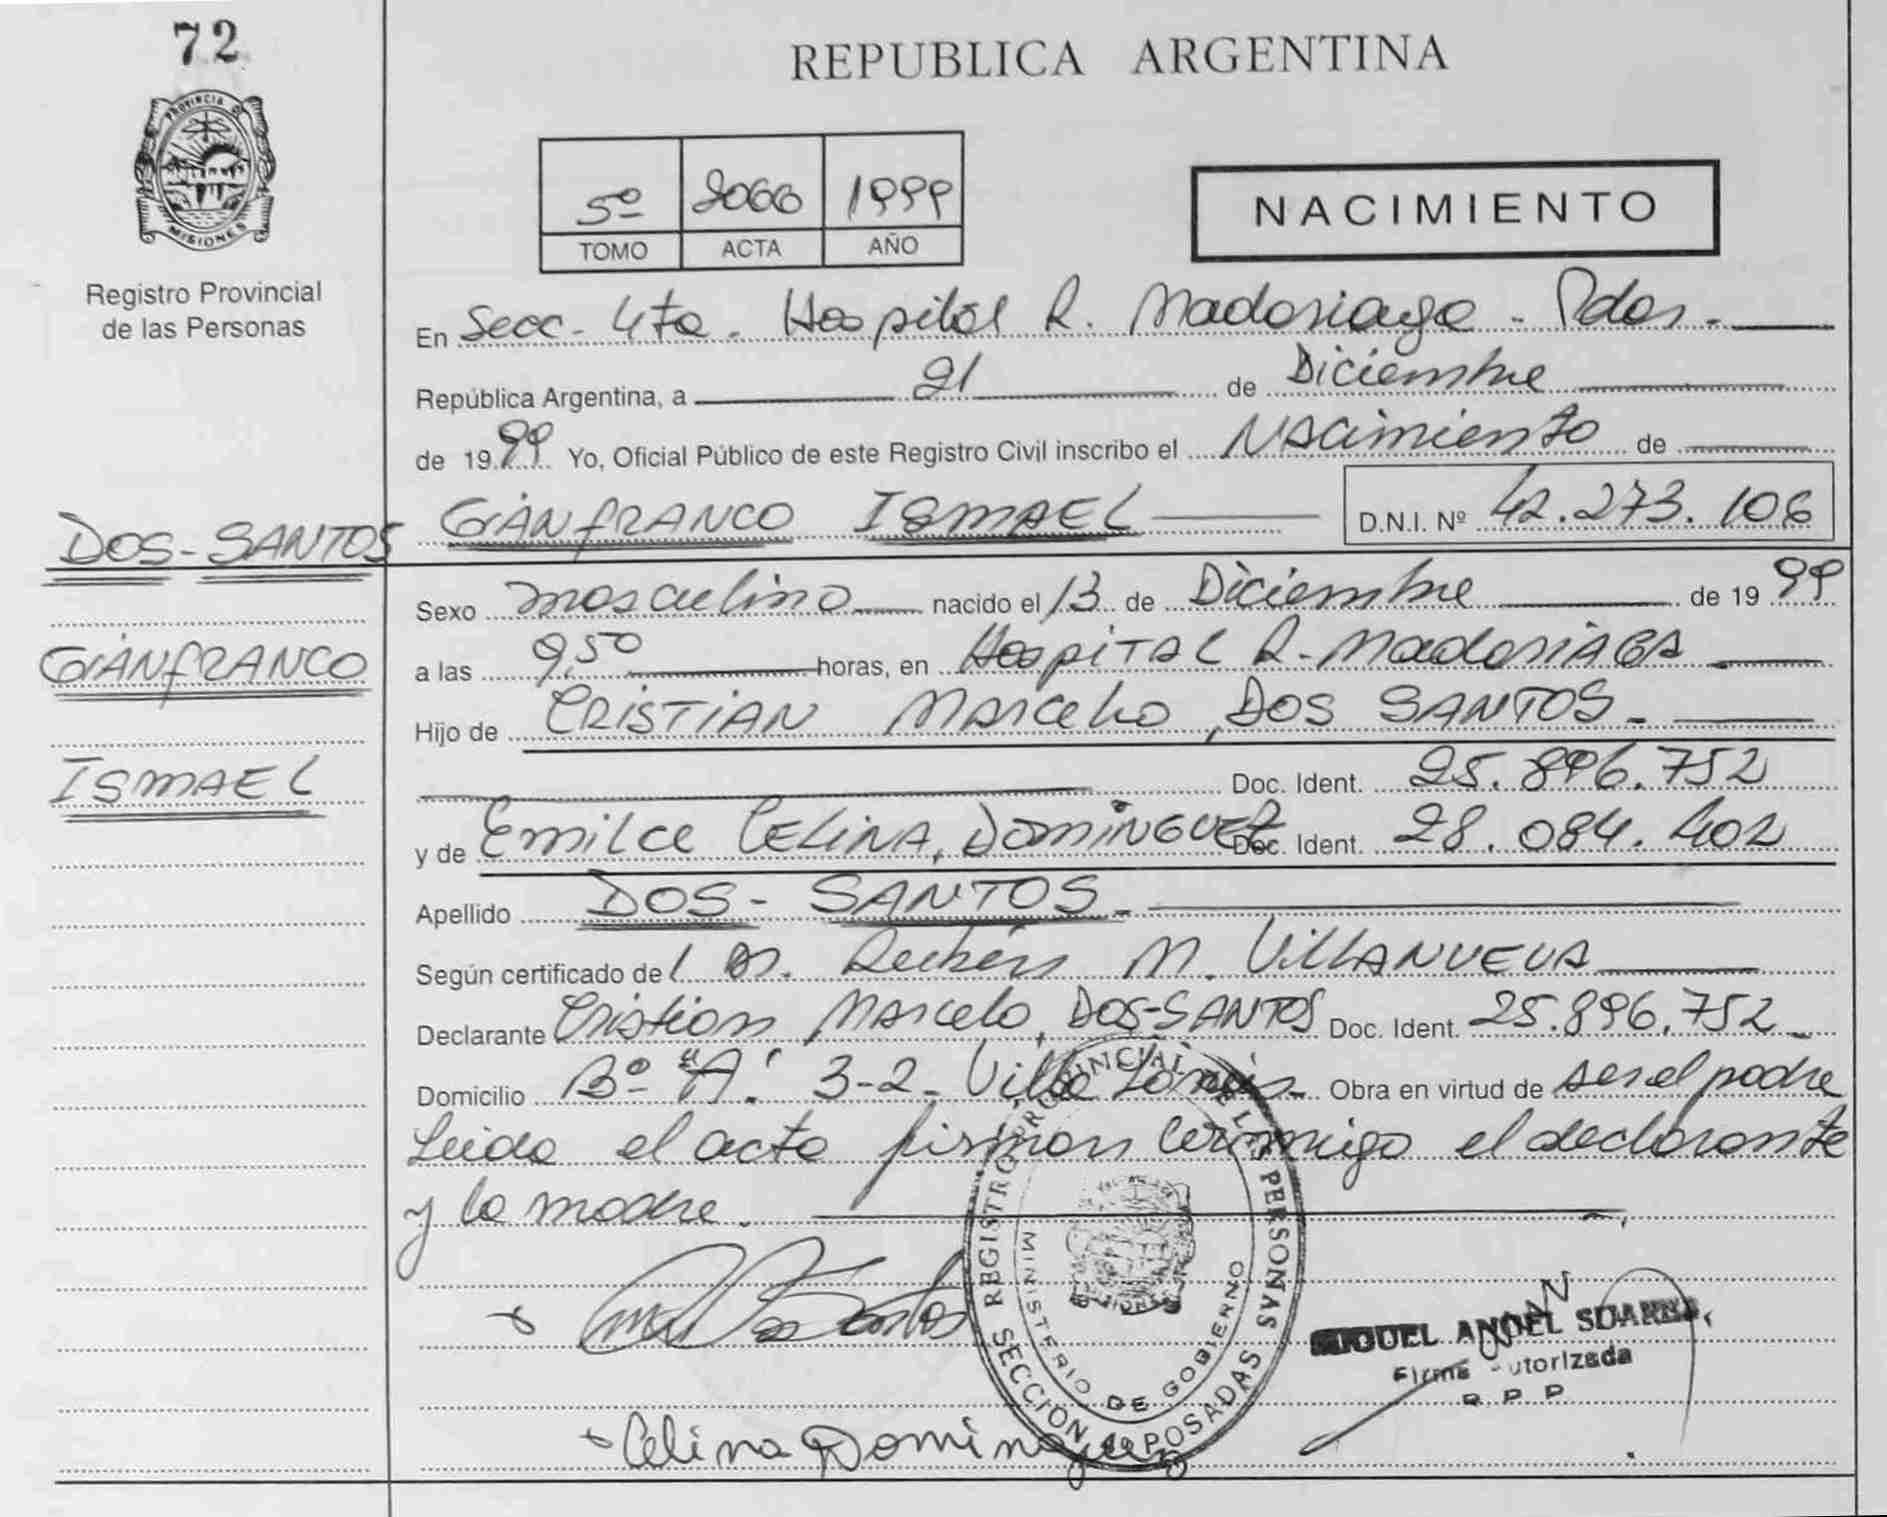 72
PROVINCIA DE
MISIONES
Registro Provincial
de las Personas
REPUBLICA ARGENTINA
5º 2066 1999
TOMO ACTA AÑO
NACIMIENTO
En Secc- 4ta- Hospital R. Madariaga - Pdas.
República Argentina, a 21 de Diciembre
de 1999 Yo, Oficial Público de este Registro Civil inscribo el Nacimiento de
DOS-SANTOS GIANFRANCO ISMAEL D.N.I. Nº 42.273.106
Sexo masculino nacido el 13 de Diciembre de 1999
GIANFRANCO
a las 9,50 horas, en Hospital R. Madariaga
Hijo de CRISTIAN Marcelo, DOS SANTOS-
ISMAEL
Doc. Ident. 25.896.752
y de Emilce CELINA, DOMINGUEZ Doc. Ident. 28.084.402
Apellido DOS- SANTOS-
Según certificado del Dr. Rubén M. VILLANUEVA
Declarante Cristian Marcelo, DOS-SANTOS Doc. Ident. 25.896.752-
Domicilio Bº "A" 3-2- Villa Obra en virtud de ser el padre
Leida el acta firman conmigo el declarante
y la madre.
REGISTRO PROVINCIAL DE LAS PERSONAS
MINISTERIO DE GOBIERNO
SECCIÓN 4º POSADAS
MIGUEL ANGEL
Firma Autorizada
R P P
Celina Dominguez